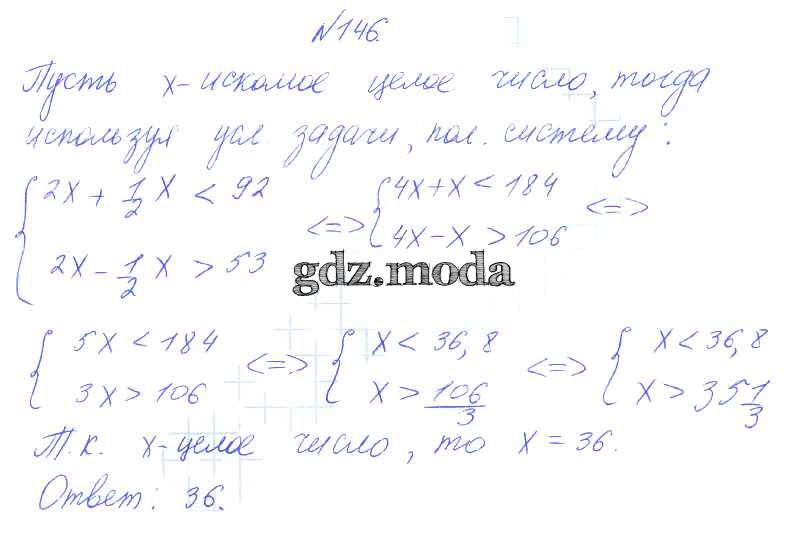 №146.
Пусть x - искомое целое число, тогда
используя усл. задачи, пол. систему:
{ 2x + 1/2 x < 92 <=> { 4x + x < 184 <=>
{ 2x - 1/2 x > 53 { 4x - x > 106
gdz.moda
{ 5x < 184 <=> { x < 36,8 <=> { x < 36,8
{ 3x > 106 { x > 106/3 { x > 35 1/3
Т.к. x - целое число, то x = 36.
Ответ: 36.